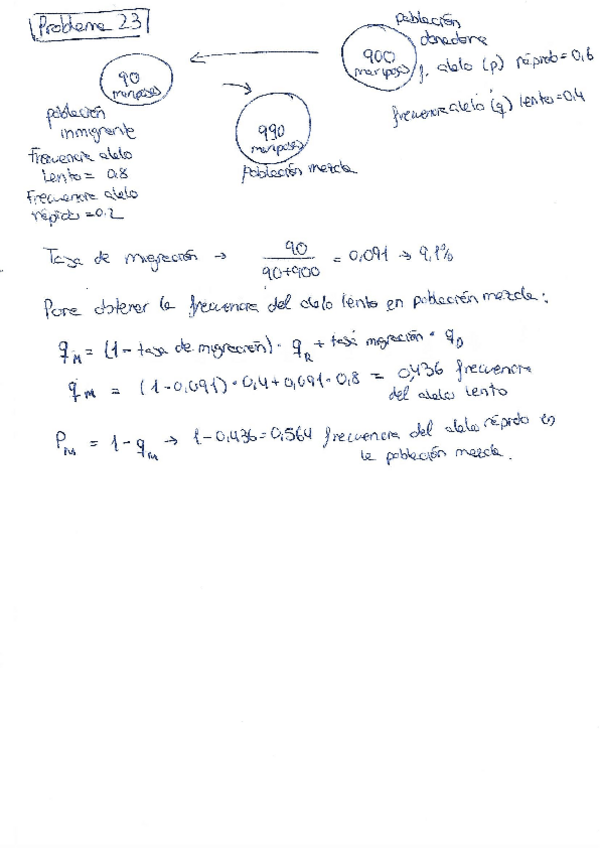 Problema 23
90
mariposas
población
inmigrante
Frecuencia alelo
lento = 0.8
Frecuencia alelo
rápido = 0.2
990
mariposas
población mezcla
900
mariposas
población
donadora
f. alelo (p) rápido = 0,6
frecuencia alelo (q) lento = 0,4
Tasa de migración → 90 / 90+900 = 0,091 → 9,1%
Para obtener la frecuencia del alelo lento en población mezcla:
qM = (1 - tasa de migración) · qR + tasa migración · qD
qM = (1-0,091) · 0,4 + 0,091 · 0,8 = 0,436 frecuencia
del alelo lento
PM = 1 - qM → 1-0,436 = 0,564 frecuencia del alelo rápido en
la población mezcla.